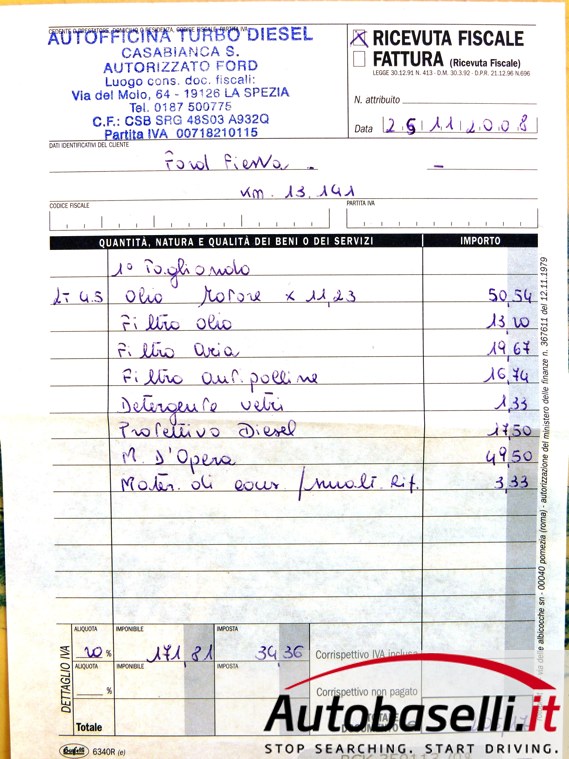 CEDENTE O PRESTATORE, DOMICILIO O RESIDENZA, CODICE FISCALE, PARTITA IVA
AUTOFFICINA TURBO DIESEL
CASABIANCA S.
AUTORIZZATO FORD
Luogo cons. doc. fiscali:
Via del Molo, 64 - 19126 LA SPEZIA
Tel. 0187 500775
C.F.: CSB SRG 48S03 A932Q
Partita IVA 00718210115
X RICEVUTA FISCALE
FATTURA (Ricevuta Fiscale)
LEGGE 30.12.91 N. 413 - D.M. 30.3.92 - D.P.R. 21.12.96 N.696
N. attribuito
Data 25 11 2008
DATI IDENTIFICATIVI DEL CLIENTE
Ford Fiesta - -
KM. 13.141
CODICE FISCALE PARTITA IVA
QUANTITÀ, NATURA E QUALITÀ DEI BENI O DEI SERVIZI IMPORTO
1° Tagliando
LT 4.5 Olio Motore x 11,23 50,54
Filtro olio 13,20
Filtro Aria 19,67
Filtro ant. polline 16,74
Detergente vetri 1,33
Protettivo Diesel 17,50
M. D'Opera 49,50
Mater. di cons / smalt. Rif. 3,33
DETTAGLIO IVA
ALIQUOTA IMPONIBILE IMPOSTA
20 % 171,81 34 36 Corrispettivo IVA inclusa
ALIQUOTA IMPONIBILE IMPOSTA
% Corrispettivo non pagato
Totale
Buffetti 6340R (e)
via delle albicocche sn - 00040 pomezia (roma) - autorizzazione del ministero delle finanze n. 367611 del 12.11.1979
Autobaselli.it
STOP SEARCHING. START DRIVING.